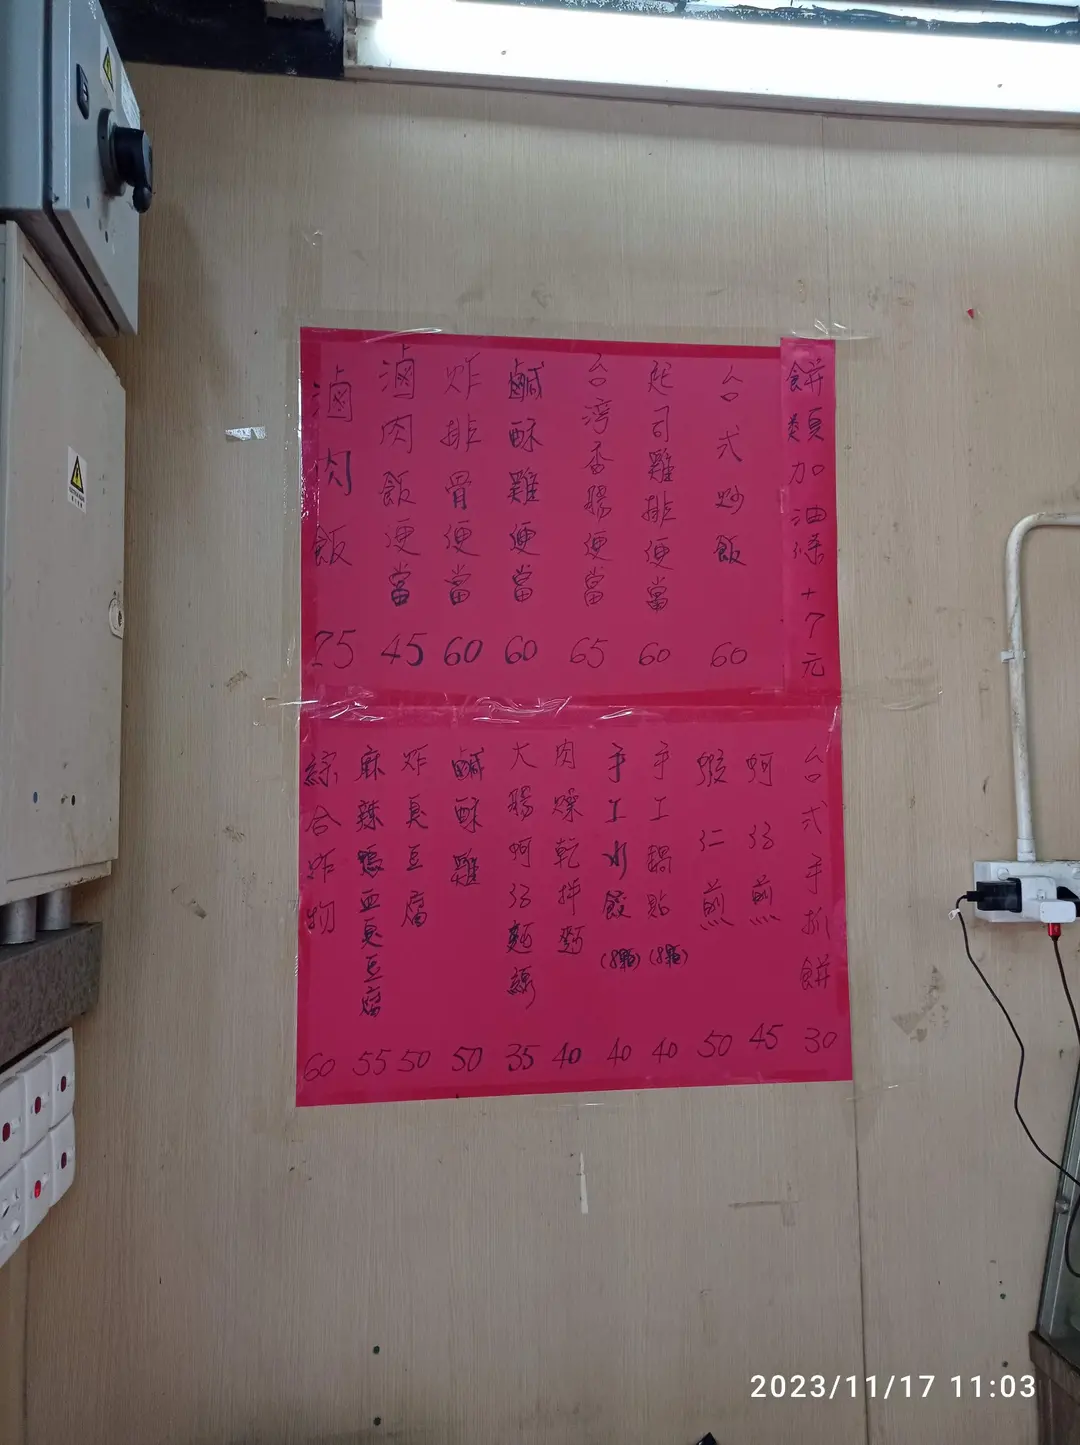 餅類加油條+7元
台式炒飯 60
起司雞排便當 60
台灣香腸便當 65
鹹酥雞便當 60
炸排骨便當 60
滷肉飯便當 45
滷肉飯 25
台式手抓餅 30
蚵仔煎 45
蝦仁煎 50
手工鍋貼(8顆) 40
手工水餃(8顆) 40
肉燥乾拌麵 40
大腸蚵仔麵線 35
鹹酥雞 50
炸臭豆腐 50
麻辣鴨血臭豆腐 55
綜合炸物 60
2023/11/17 11:03